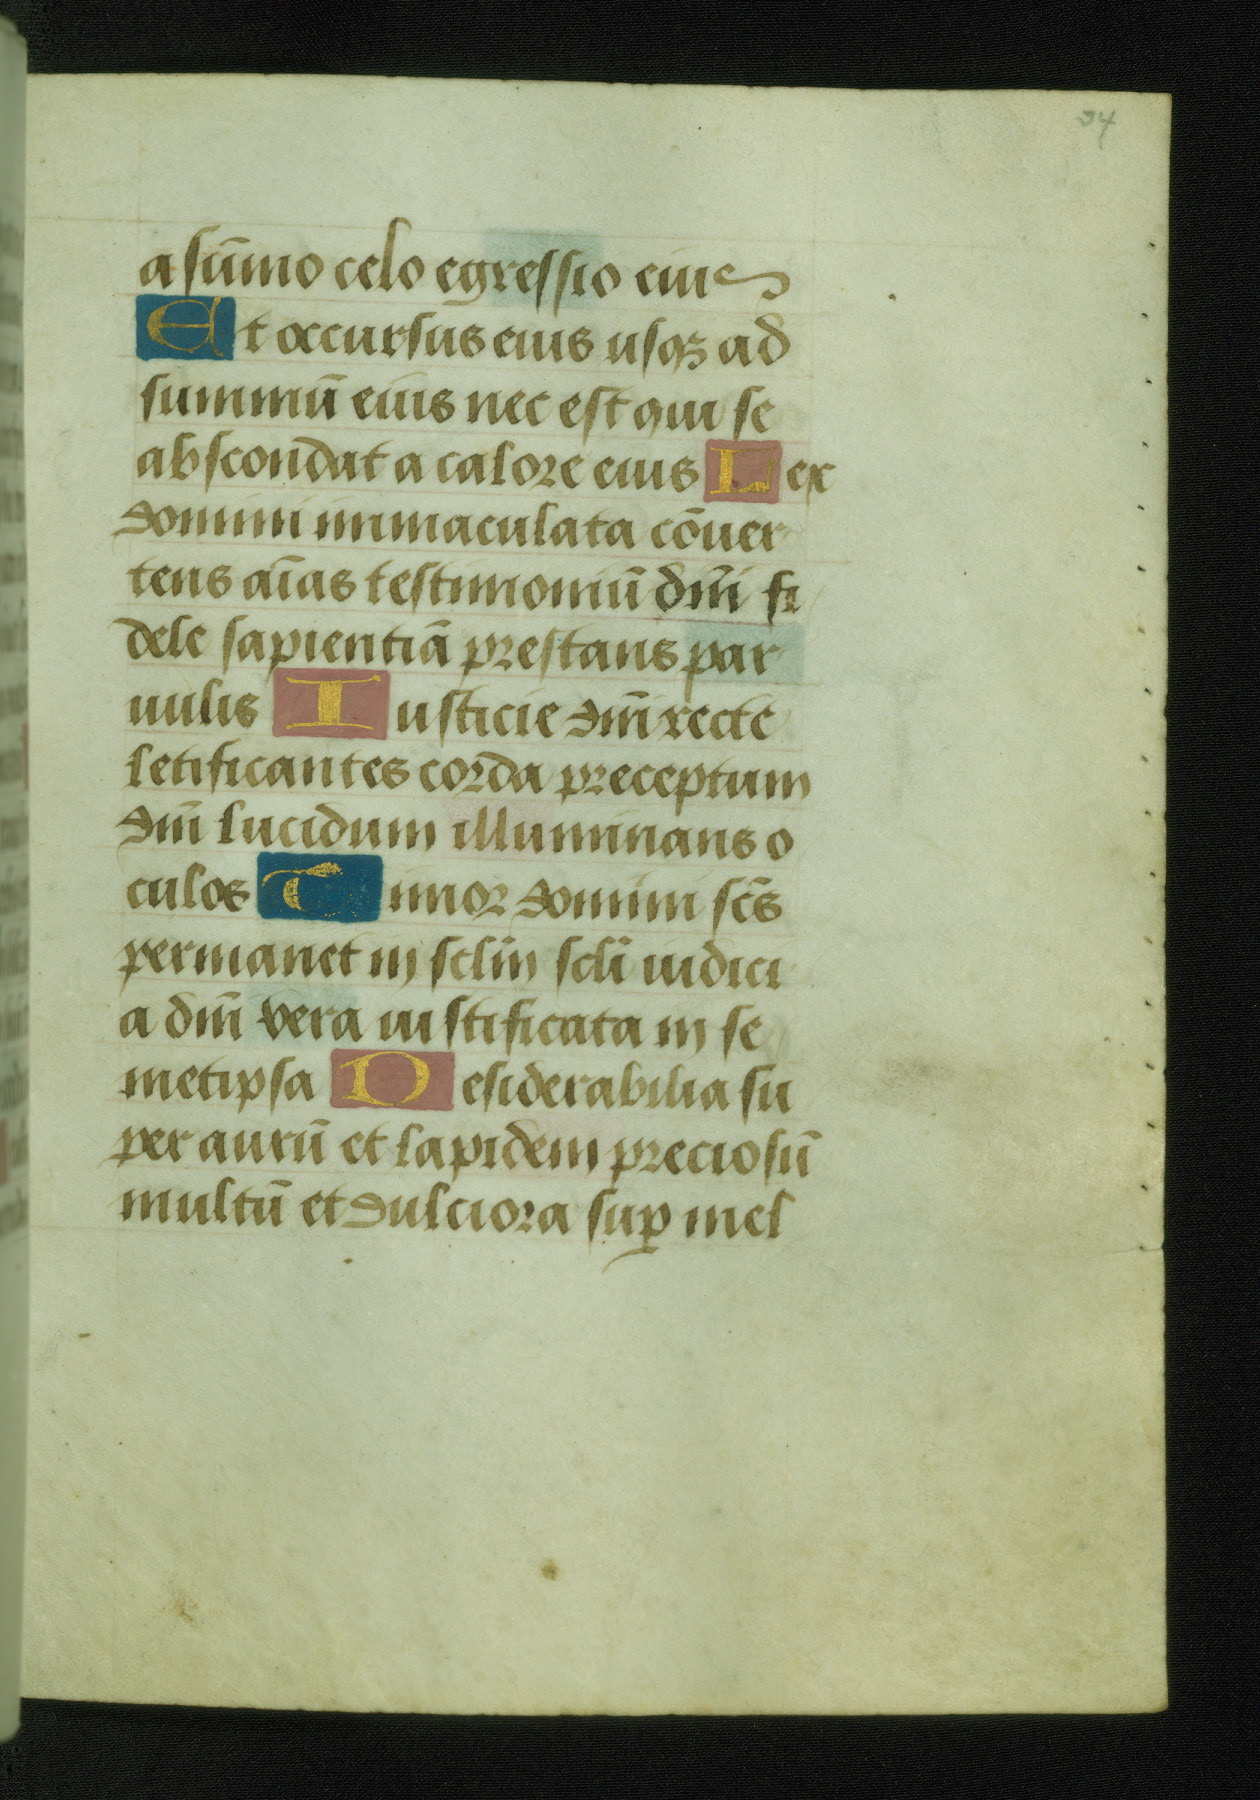 34
a sūmo celo egressio eius
Et occursus eius usqꝫ ad
summū eius nec est qui se
abscondat a calore eius Lex
domini inmaculata cōuer
tens aīas testimoniū dn̄i fi
dele sapientiā prestans par
uulis Iusticie dn̄i recte
letificantes corda preceptum
dn̄i lucidum illuminans o
culos Timor domini sc̄s
permanet in sclm̄ scli̅ iudici
a dn̄i vera iustificata in se
metipsa Desiderabilia su
per aurū et lapidem preciosū
multū et dulciora suꝑ mel